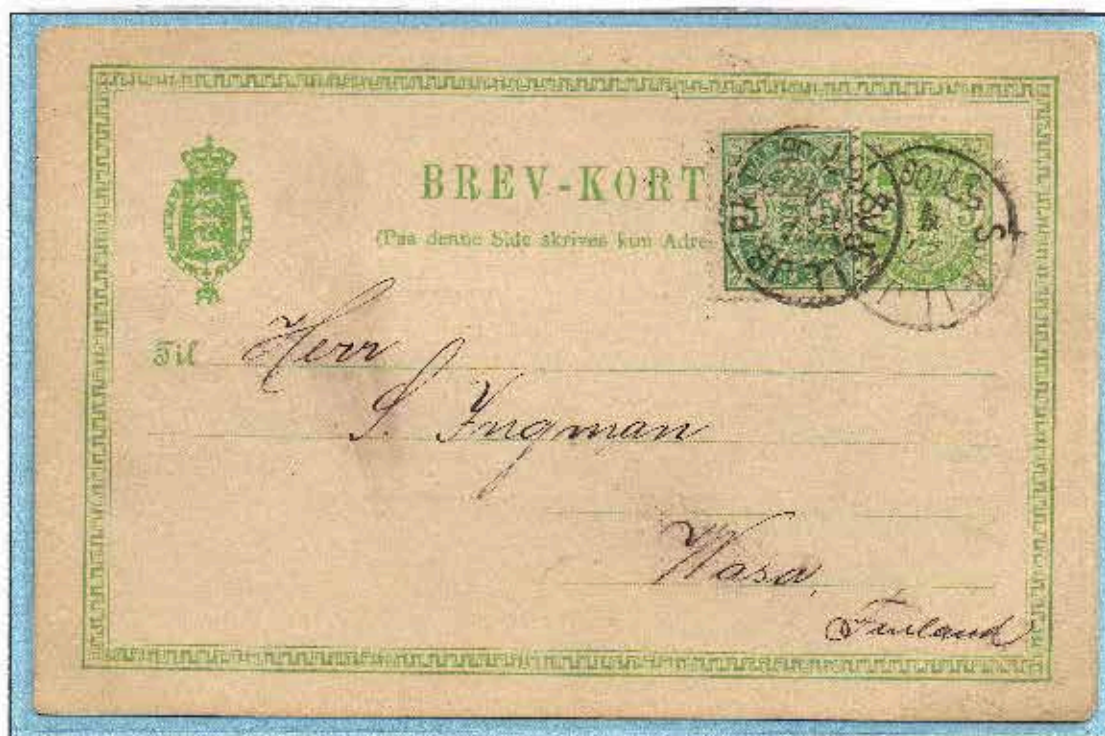 BREV-KORT
(Paa denne Side skrives kun
Til Herr
S. Ingman
Wasa,
Finland